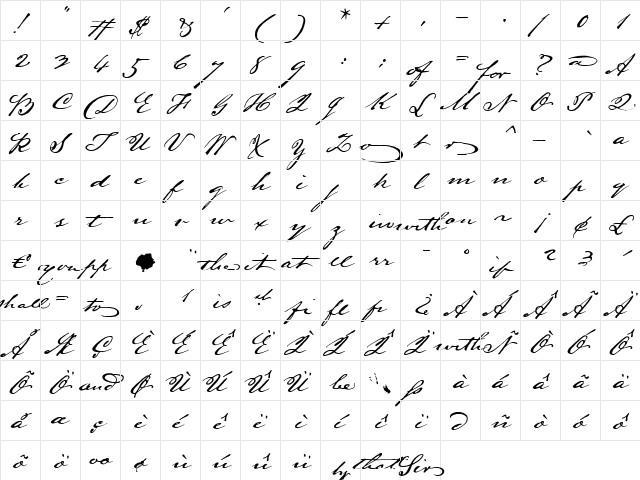 ! " # $ & ' ( ) * + , – . / 0 1
2 3 4 5 6 7 8 9 : ; of = for ? a A
B C D E F G H I J K L M N O P Q
R S T U V W X Y Z ^ _ ` a
b c d e f g h i j k l m n o p q
r s t u v w x y z in with on ~ ¡ ¢ £
€ you pp " the it at ll rr ¯ ° if 2 3 ´
shall = to , 1 is fi fl fr ¿ À Á Â Ã Ä
Å Æ Ç È É Ê Ë Ì Í Î Ï with Ñ Ò Ó Ô
Õ Ö and Ø Ù Ú Û Ü be ß à á â ã ä
å æ ç è é ê ë ì í î ï ð ñ ò ó ô
õ ö oo ø ù ú û ü by that Sir